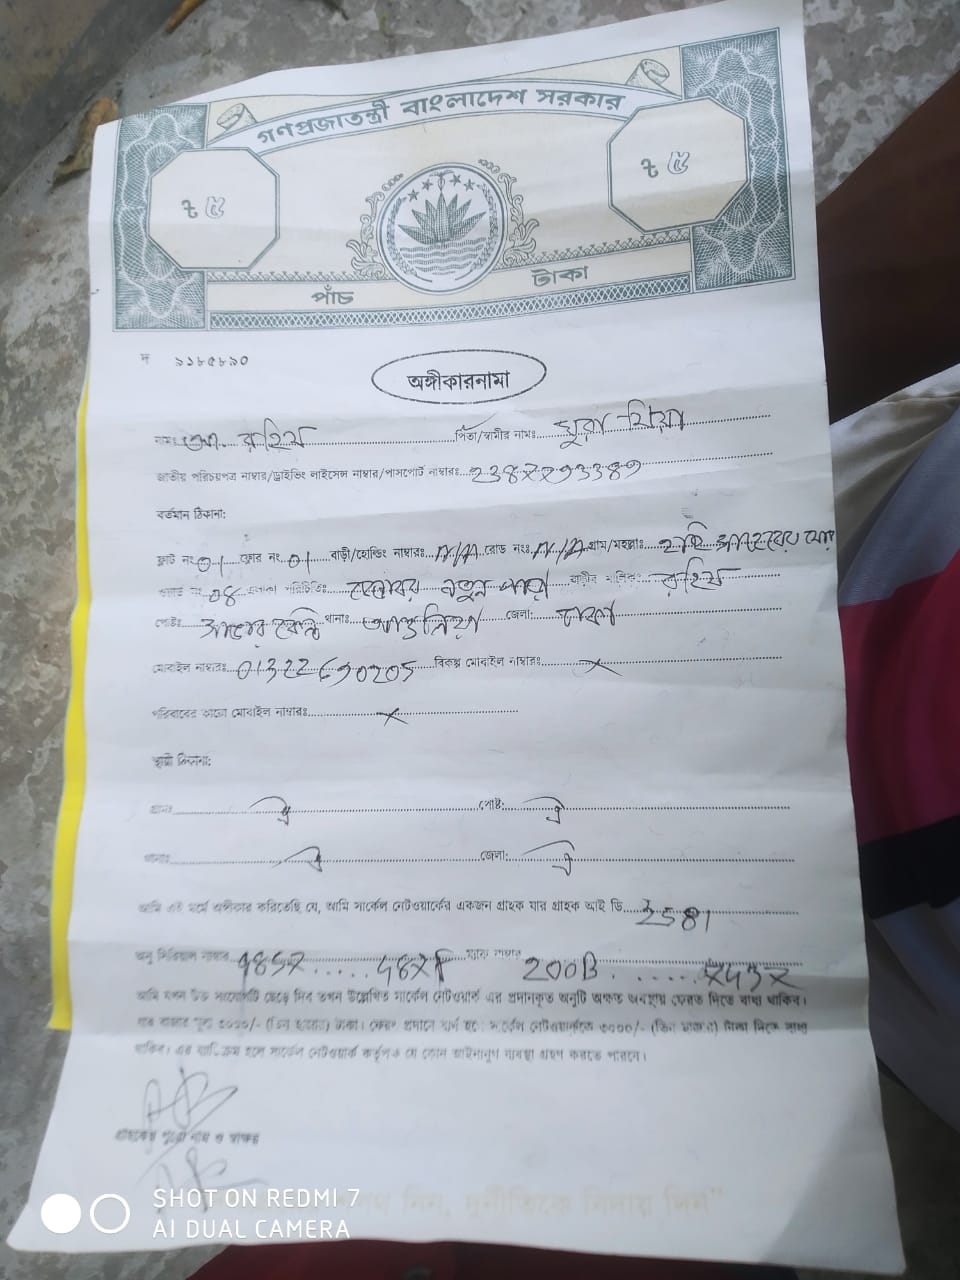 গণপ্রজাতন্ত্রী বাংলাদেশ সরকার
৳ ৫ ৳ ৫
পাঁচ টাকা
দ ২১৮৫৮৯০
অঙ্গীকারনামা
নামঃ রহিম পিতা/স্বামীর নামঃ মিয়া
জাতীয় পরিচয়পত্র নাম্বার/ড্রাইভিং লাইসেন্স নাম্বার/পাসপোর্ট নাম্বারঃ
বর্তমান ঠিকানা:
ফ্লাট নং 01 ফ্লোর নং 01 বাড়ী/হোল্ডিং নাম্বারঃ N/A রোড নংঃ N/A গ্রাম/মহল্লাঃ
ওয়ার্ড নং 04 এলাকা পরিচিতিঃ নতুন পাড়া বাড়ীর মালিকঃ রহিম
পোষ্টঃ থানাঃ আশুলিয়া জেলা: ঢাকা
মোবাইল নাম্বারঃ বিকল্প মোবাইল নাম্বারঃ x
পরিবারের কারো মোবাইল নাম্বারঃ x
স্থায়ী ঠিকানা:
গ্রামঃ ঐ পোষ্ট: ঐ
থানাঃ ঐ জেলা: ঐ
আমি এই মর্মে অঙ্গীকার করিতেছি যে, আমি সার্কেল নেটওয়ার্কের একজন গ্রাহক যার গ্রাহক আই ডি 2581
অনু সিরিয়াল নাম্বার ম্যাক নাম্বার
আমি যখন উক্ত সংযোগটি ছেড়ে দিব তখন উল্লেখিত সার্কেল নেটওয়ার্ক এর প্রদানকৃত অনুটি অক্ষত অবস্থায় ফেরত দিতে বাধ্য থাকিব।
যার বাজার মূল্য ৩০০০/- (তিন হাজার) টাকা। ফেরৎ প্রদানে ব্যর্থ হলে সার্কেল নেটওয়ার্ককে ৩০০০/- (তিন হাজার) টাকা দিতে বাধ্য
থাকিব। এর ব্যতিক্রম হলে সার্কেল নেটওয়ার্ক কর্তৃপক্ষ যে কোন আইনানুগ ব্যবস্থা গ্রহণ করতে পারবে।
গ্রাহকের পুরো নাম ও স্বাক্ষর
নিন, দুর্নীতিকে বিদায় দিন"
SHOT ON REDMI 7
AI DUAL CAMERA